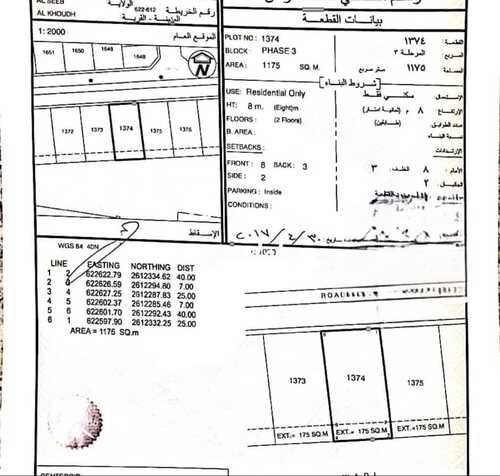 AL SEEB
AL KHOUDH
الولاية
المدينة - القرية
622-612
رقم الخريطة
1: 2000
الموقع العام
1651
1650
1649
1648
N
1372
1373
1374
1375
1376
الإسقاط
WGS 84 40N
بيانات القطعة
PLOT NO: 1374
١٣٧٤
القطعة:
BLOCK: PHASE 3
المرحلة ٣
المربع
AREA: 1175 SQ. M.
١١٧٥ متر مربع
المساحة
شروط البناء
USE: Residential Only
سكني فقط
الإستعمال
HT: 8 m. (Eight)m
٨ م (ثمانية امتار)
الإرتفاع
FLOORS: (2 Floors)
(طابقين)
عدد الطوابق
B. AREA:
نسبة البناء
SETBACKS:
الإرتدادات
FRONT: 8 BACK: 3
الأمام: ٨ الخلف: ٣
SIDE: 2
٢
PARKING: Inside
CONDITIONS:
٢٠١٧/٤/٣٠
LINE EASTING NORTHING DIST
1 2 622622.79 2612334.62 40.00
2 622626.59 2612294.80 7.00
3 4 622627.25 2612287.83 25.00
4 5 622602.37 2612285.46 7.00
5 6 622601.70 2612292.43 40.00
6 1 622597.90 2612332.25 25.00
AREA = 1175 SQ.m
1373
1374
1375
EXT.= 175 SQ.M
EXT.= 175 SQ.M
EXT.= 175 SQ.M